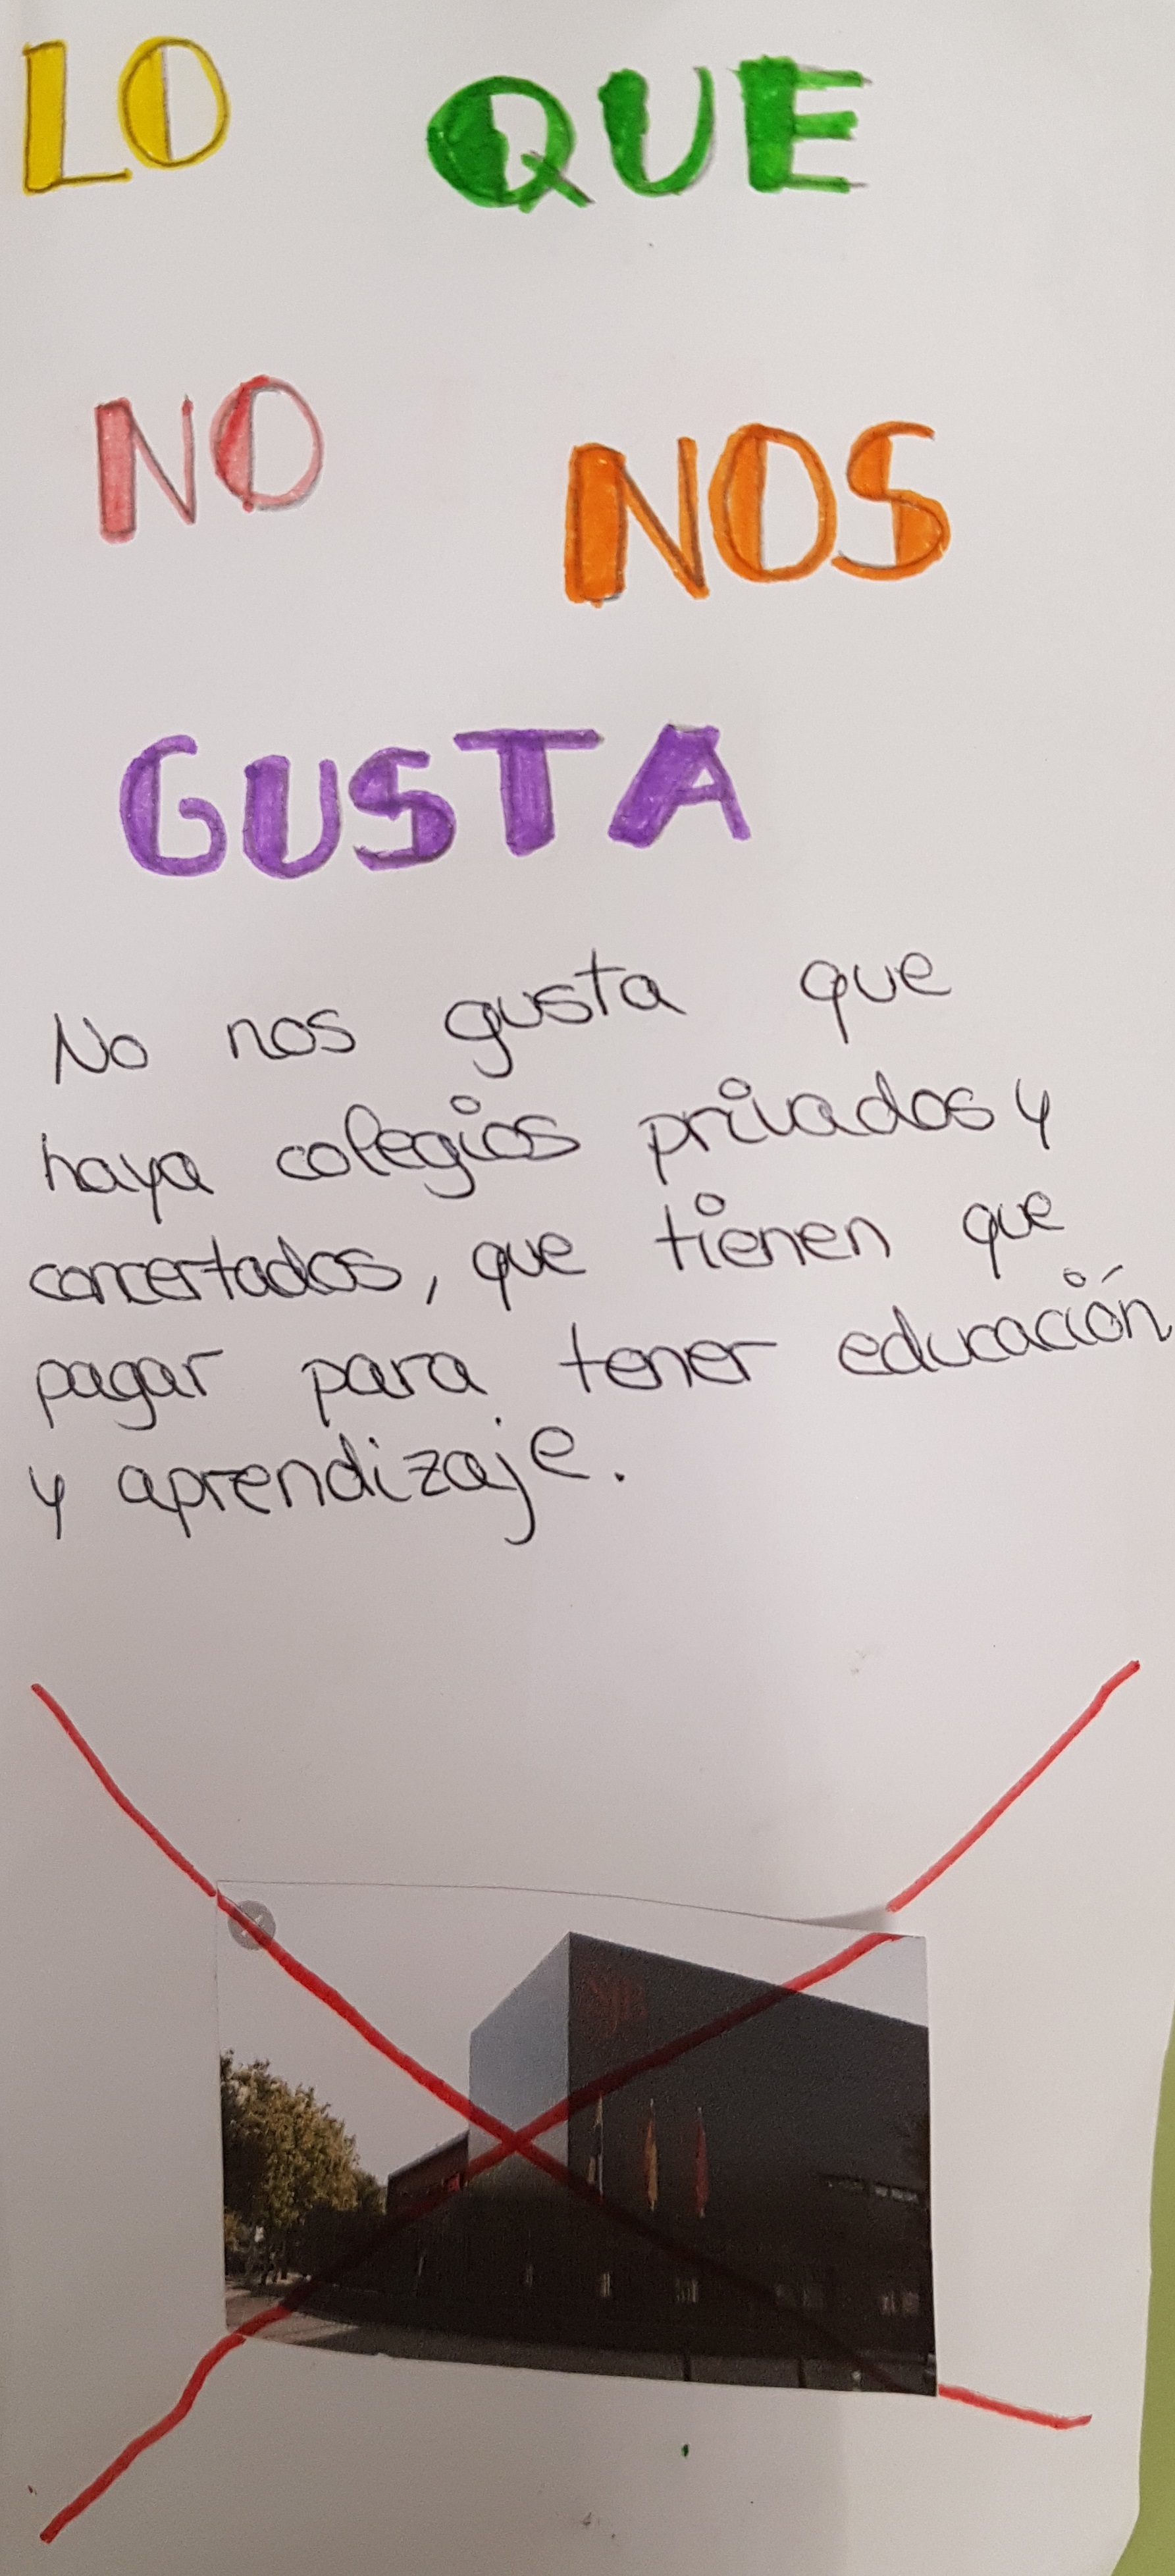 LO QUE
NO NOS
GUSTA
No nos gusta que
haya colegios privados y
concertados, que tienen que
pagar para tener educación
y aprendizaje.